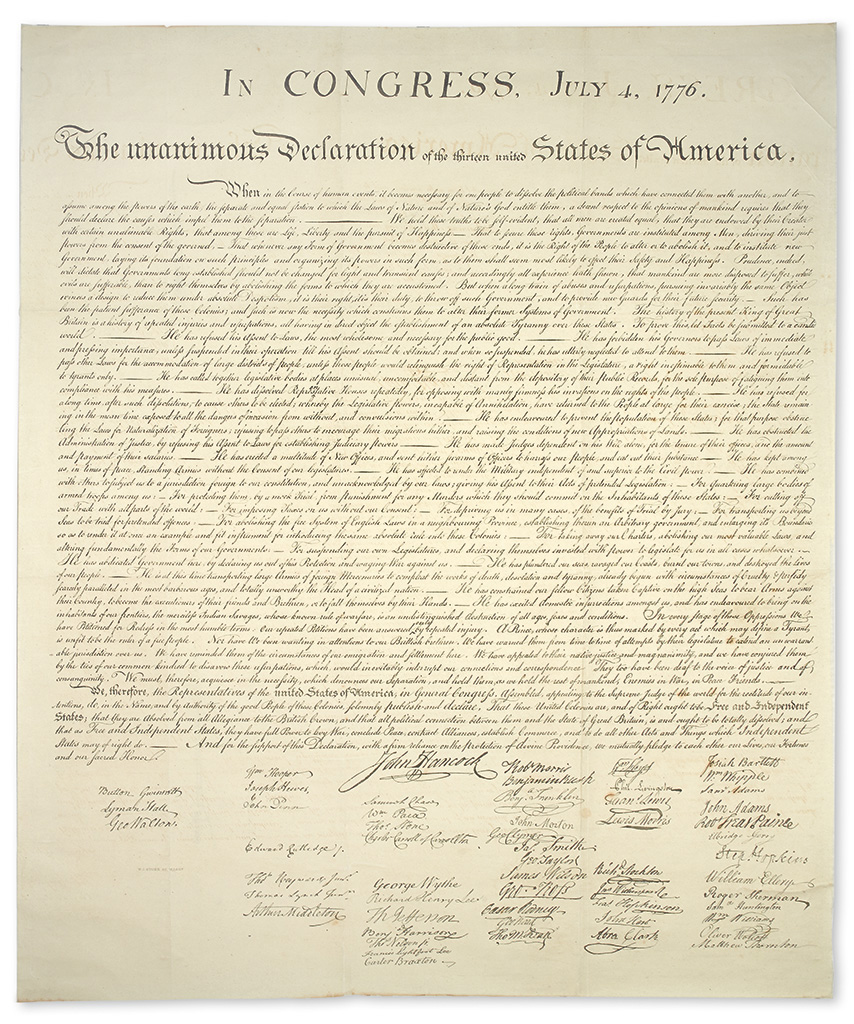 In CONGRESS, July 4, 1776.
The unanimous Declaration of the thirteen united States of America,
When in the Course of human events, it becomes necessary for one people to dissolve the political bands which have connected them with another, and to
assume among the powers of the earth, the separate and equal station to which the Laws of Nature and of Nature's God entitle them, a decent respect to the opinions of mankind requires that they
should declare the causes which impel them to the separation. — We hold these truths to be self-evident, that all men are created equal, that they are endowed by their Creator
with certain unalienable Rights, that among these are Life, Liberty and the pursuit of Happiness — That to secure these rights, Governments are instituted among Men, deriving their just
powers from the consent of the governed, — That whenever any Form of Government becomes destructive of these ends, it is the Right of the People to alter or to abolish it, and to institute new
Government, laying its foundation on such principles and organizing its powers in such form, as to them shall seem most likely to effect their Safety and Happiness. Prudence, indeed,
will dictate that Governments long established should not be changed for light and transient causes; and accordingly all experience hath shewn, that mankind are more disposed to suffer, while
evils are sufferable, than to right themselves by abolishing the forms to which they are accustomed. But when a long train of abuses and usurpations, pursuing invariably the same Object
evinces a design to reduce them under absolute Despotism, it is their right, it is their duty, to throw off such Government, and to provide new Guards for their future security. — Such has
been the patient sufferance of these Colonies; and such is now the necessity which constrains them to alter their former Systems of Government. The history of the present King of Great
Britain is a history of repeated injuries and usurpations, all having in direct object the establishment of an absolute Tyranny over these States. To prove this, let Facts be submitted to a candid
world. — He has refused his Assent to Laws, the most wholesome and necessary for the public good. — He has forbidden his Governors to pass Laws of immediate
and pressing importance, unless suspended in their operation till his Assent should be obtained; and when so suspended, he has utterly neglected to attend to them. — He has refused to
pass other Laws for the accommodation of large districts of people, unless those people would relinquish the right of Representation in the Legislature, a right inestimable to them, and formidable
to tyrants only. — He has called together legislative bodies at places unusual, uncomfortable, and distant from the depository of their public Records, for the sole purpose of fatiguing them into
compliance with his measures. — He has dissolved Representative Houses repeatedly, for opposing with manly firmness his invasions on the rights of the people. — He has refused for
a long time, after such dissolutions, to cause others to be elected; whereby the Legislative powers, incapable of Annihilation, have returned to the People at large for their exercise; the State remain
ing in the mean time exposed to all the dangers of invasion from without, and convulsions within. — He has endeavoured to prevent the population of these States; for that purpose obstruc
ting the Laws for Naturalization of Foreigners; refusing to pass others to encourage their migrations hither, and raising the conditions of new Appropriations of Lands. — He has obstructed the
Administration of Justice, by refusing his Assent to Laws for establishing Judiciary powers. — He has made Judges dependent on his Will alone, for the tenure of their offices, and the amount
and payment of their salaries. — He has erected a multitude of New Offices, and sent hither swarms of Officers to harrass our people, and eat out their substance. — He has kept among
us, in times of peace, Standing Armies without the Consent of our legislatures. — He has affected to render the Military independent of and superior to the Civil power. — He has combined
with others to subject us to a jurisdiction foreign to our constitution, and unacknowledged by our laws; giving his Assent to their Acts of pretended Legislation: — For Quartering large bodies of
armed troops among us: — For protecting them, by a mock Trial, from punishment for any Murders which they should commit on the Inhabitants of these States: — For cutting off
our Trade with all parts of the world: — For imposing Taxes on us without our Consent: — For depriving us in many cases, of the benefits of Trial by Jury: — For transporting us beyond
Seas to be tried for pretended offences: — For abolishing the free System of English Laws in a neighbouring Province, establishing therein an Arbitrary government, and enlarging its Boundaries
so as to render it at once an example and fit instrument for introducing the same absolute rule into these Colonies: — For taking away our Charters, abolishing our most valuable Laws, and
altering fundamentally the Forms of our Governments: — For suspending our own Legislatures, and declaring themselves invested with power to legislate for us in all cases whatsoever. —
He has abdicated Government here, by declaring us out of his Protection and waging War against us. — He has plundered our seas, ravaged our Coasts, burnt our towns, and destroyed the Lives
of our people. — He is at this time transporting large Armies of foreign Mercenaries to compleat the works of death, desolation and tyranny, already begun with circumstances of Cruelty & perfidy
scarcely paralleled in the most barbarous ages, and totally unworthy the Head of a civilized nation. — He has constrained our fellow Citizens taken Captive on the high Seas to bear Arms against
their Country, to become the executioners of their friends and Brethren, or to fall themselves by their Hands. — He has excited domestic insurrections amongst us, and has endeavoured to bring on the
inhabitants of our frontiers, the merciless Indian Savages, whose known rule of warfare, is an undistinguished destruction of all ages, sexes and conditions. In every stage of these Oppressions We
have Petitioned for Redress in the most humble terms: Our repeated Petitions have been answered only by repeated injury. A Prince, whose character is thus marked by every act which may define a Tyrant,
is unfit to be the ruler of a free people. Nor have We been wanting in attentions to our Brittish brethren. We have warned them from time to time of attempts by their legislature to extend an unwarrant
able jurisdiction over us. We have reminded them of the circumstances of our emigration and settlement here. We have appealed to their native justice and magnanimity, and we have conjured them
by the ties of our common kindred to disavow these usurpations, which, would inevitably interrupt our connections and correspondence. They too have been deaf to the voice of justice and of
consanguinity. We must, therefore, acquiesce in the necessity, which denounces our Separation, and hold them, as we hold the rest of mankind, Enemies in War, in Peace Friends. —
We, therefore, the Representatives of the united States of America, in General Congress, Assembled, appealing to the Supreme Judge of the world for the rectitude of our in-
tentions, do, in the Name, and by Authority of the good People of these Colonies, solemnly publish and declare, That these United Colonies are, and of Right ought to be Free and Independent
States; that they are Absolved from all Allegiance to the British Crown, and that all political connection between them and the State of Great Britain, is and ought to be totally dissolved; and
that as Free and Independent States, they have full Power to levy War, conclude Peace, contract Alliances, establish Commerce, and to do all other Acts and Things which Independent
States may of right do. — And for the support of this Declaration, with a firm reliance on the Protection of divine Providence, we mutually pledge to each other our Lives, our Fortunes
and our sacred Honor.
Button Gwinnett
Lyman Hall
Geo Walton.
Wm Hooper
Joseph Hewes,
John Penn
Edward Rutledge /.
Thos Heyward Junr.
Thomas Lynch Junr.
Arthur Middleton
John Hancock
Samuel Chase
Wm Paca
Thos Stone
Charles Carroll of Carrollton
George Wythe
Richard Henry Lee
Th Jefferson
Benj Harrison
Thos Nelson jr.
Francis Lightfoot Lee
Carter Braxton
Robt Morris
Benjamin Rush
Benj. Franklin
John Morton
Geo Clymer
Jas. Smith
Geo. Taylor
James Wilson
Geo. Ross
Caesar Rodney
Geo Read
Tho M:Kean
Wm Floyd
Phil. Livingston
Frans. Lewis
Lewis Morris
Richd. Stockton
Jno Witherspoon
Fras. Hopkinson
John Hart
Abra Clark
Josiah Bartlett
Wm Whipple
Saml Adams
John Adams
Robt Treat Paine
Elbridge Gerry
Step. Hopkins
William Ellery
Roger Sherman
Saml Huntington
Wm Williams
Oliver Wolcott
Matthew Thornton